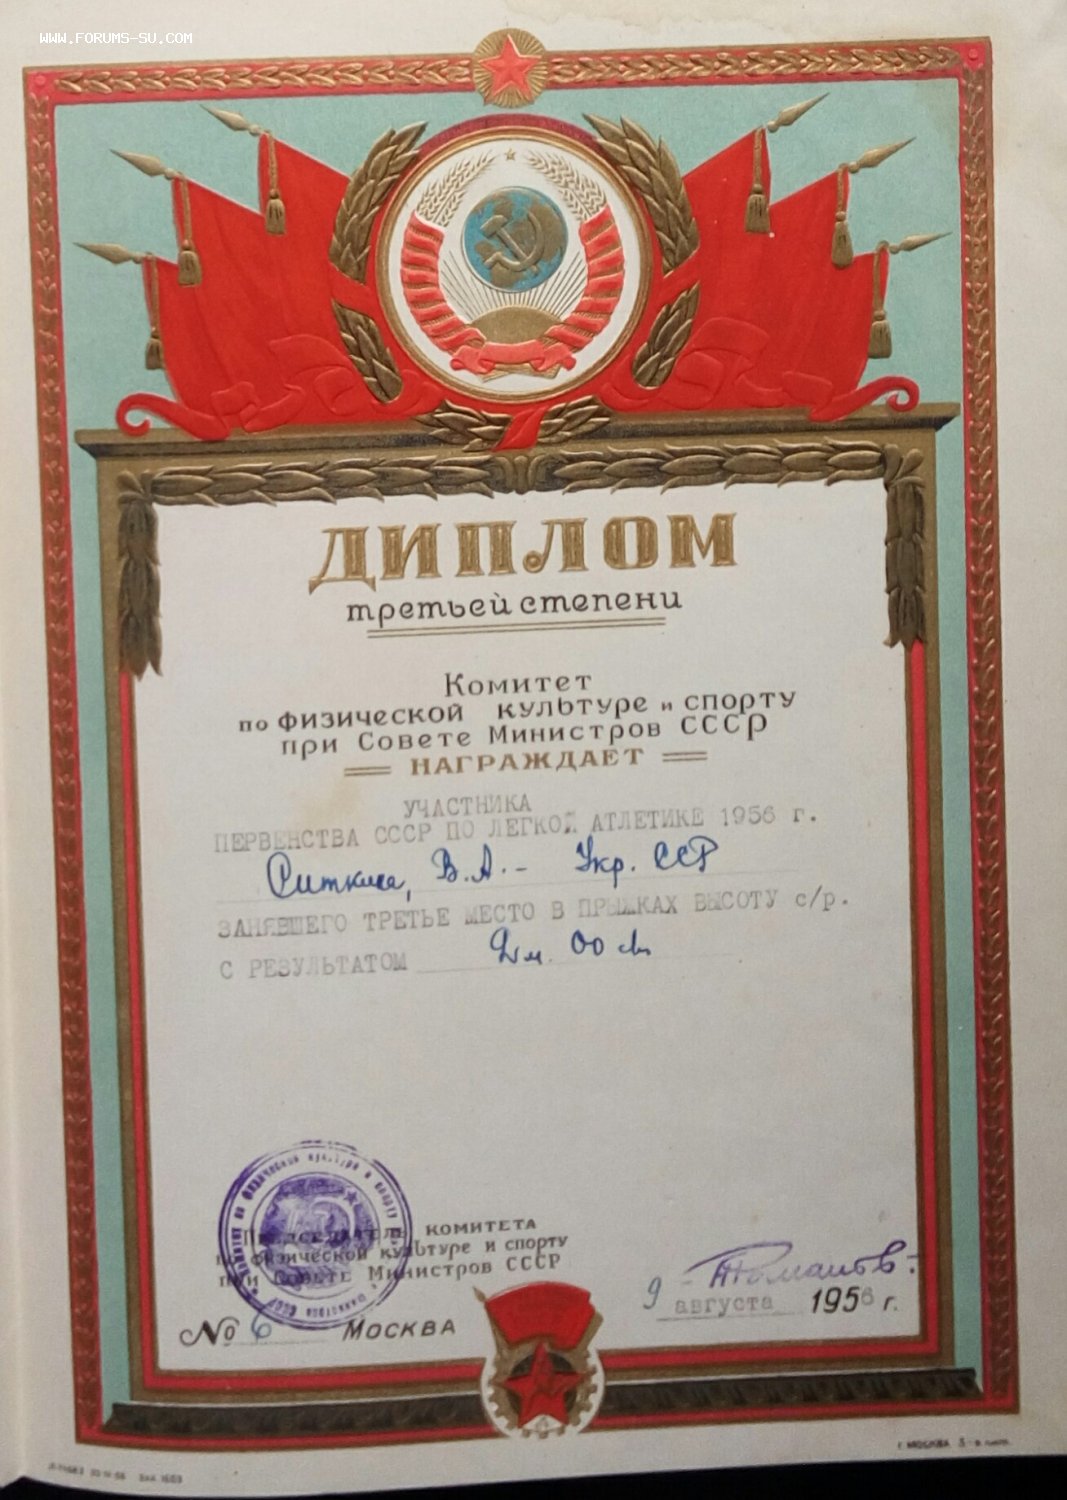 WWW.FORUMS-SU.COM
ДИПЛОМ
третьей степени
Комитет
по физической культуре и спорту
при Совете Министров СССР
НАГРАЖДАЕТ
УЧАСТНИКА
ПЕРВЕНСТВА СССР ПО ЛЕГКОЙ АТЛЕТИКЕ 1956 г.
В.А. – Укр. ССР
ЗАНЯВШЕГО ТРЕТЬЕ МЕСТО В ПРЫЖКАХ ВЫСОТУ с/р.
С РЕЗУЛЬТАТОМ 2 м. 00 см
Председатель комитета
по физической культуре и спорту
при Совете Министров СССР
9 августа 1956 г.
№ 6 Москва
г. МОСКВА